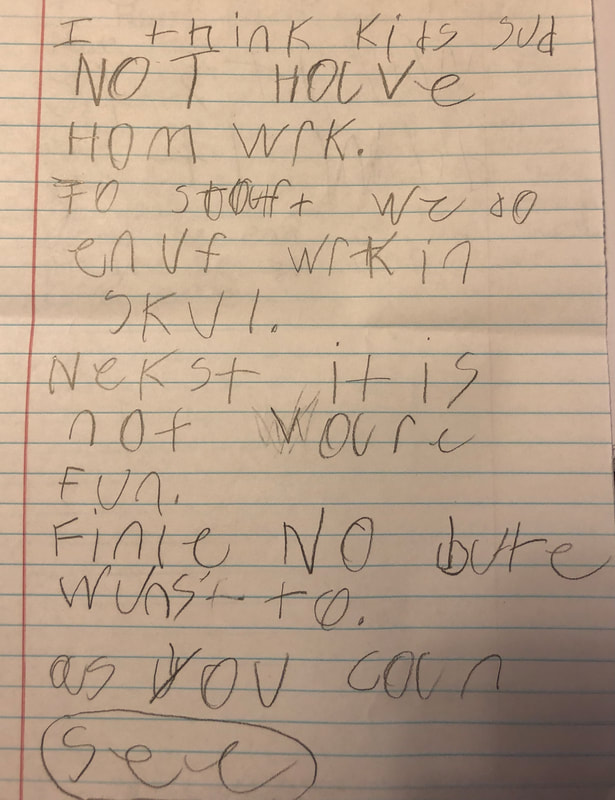 I think kids sud
NOT Have
Hom wrk.
To stauft we do
enuf wrk in
skul.
Nekst it is
not vare
fun.
Finle NO bute
wunst to.
as you can
see